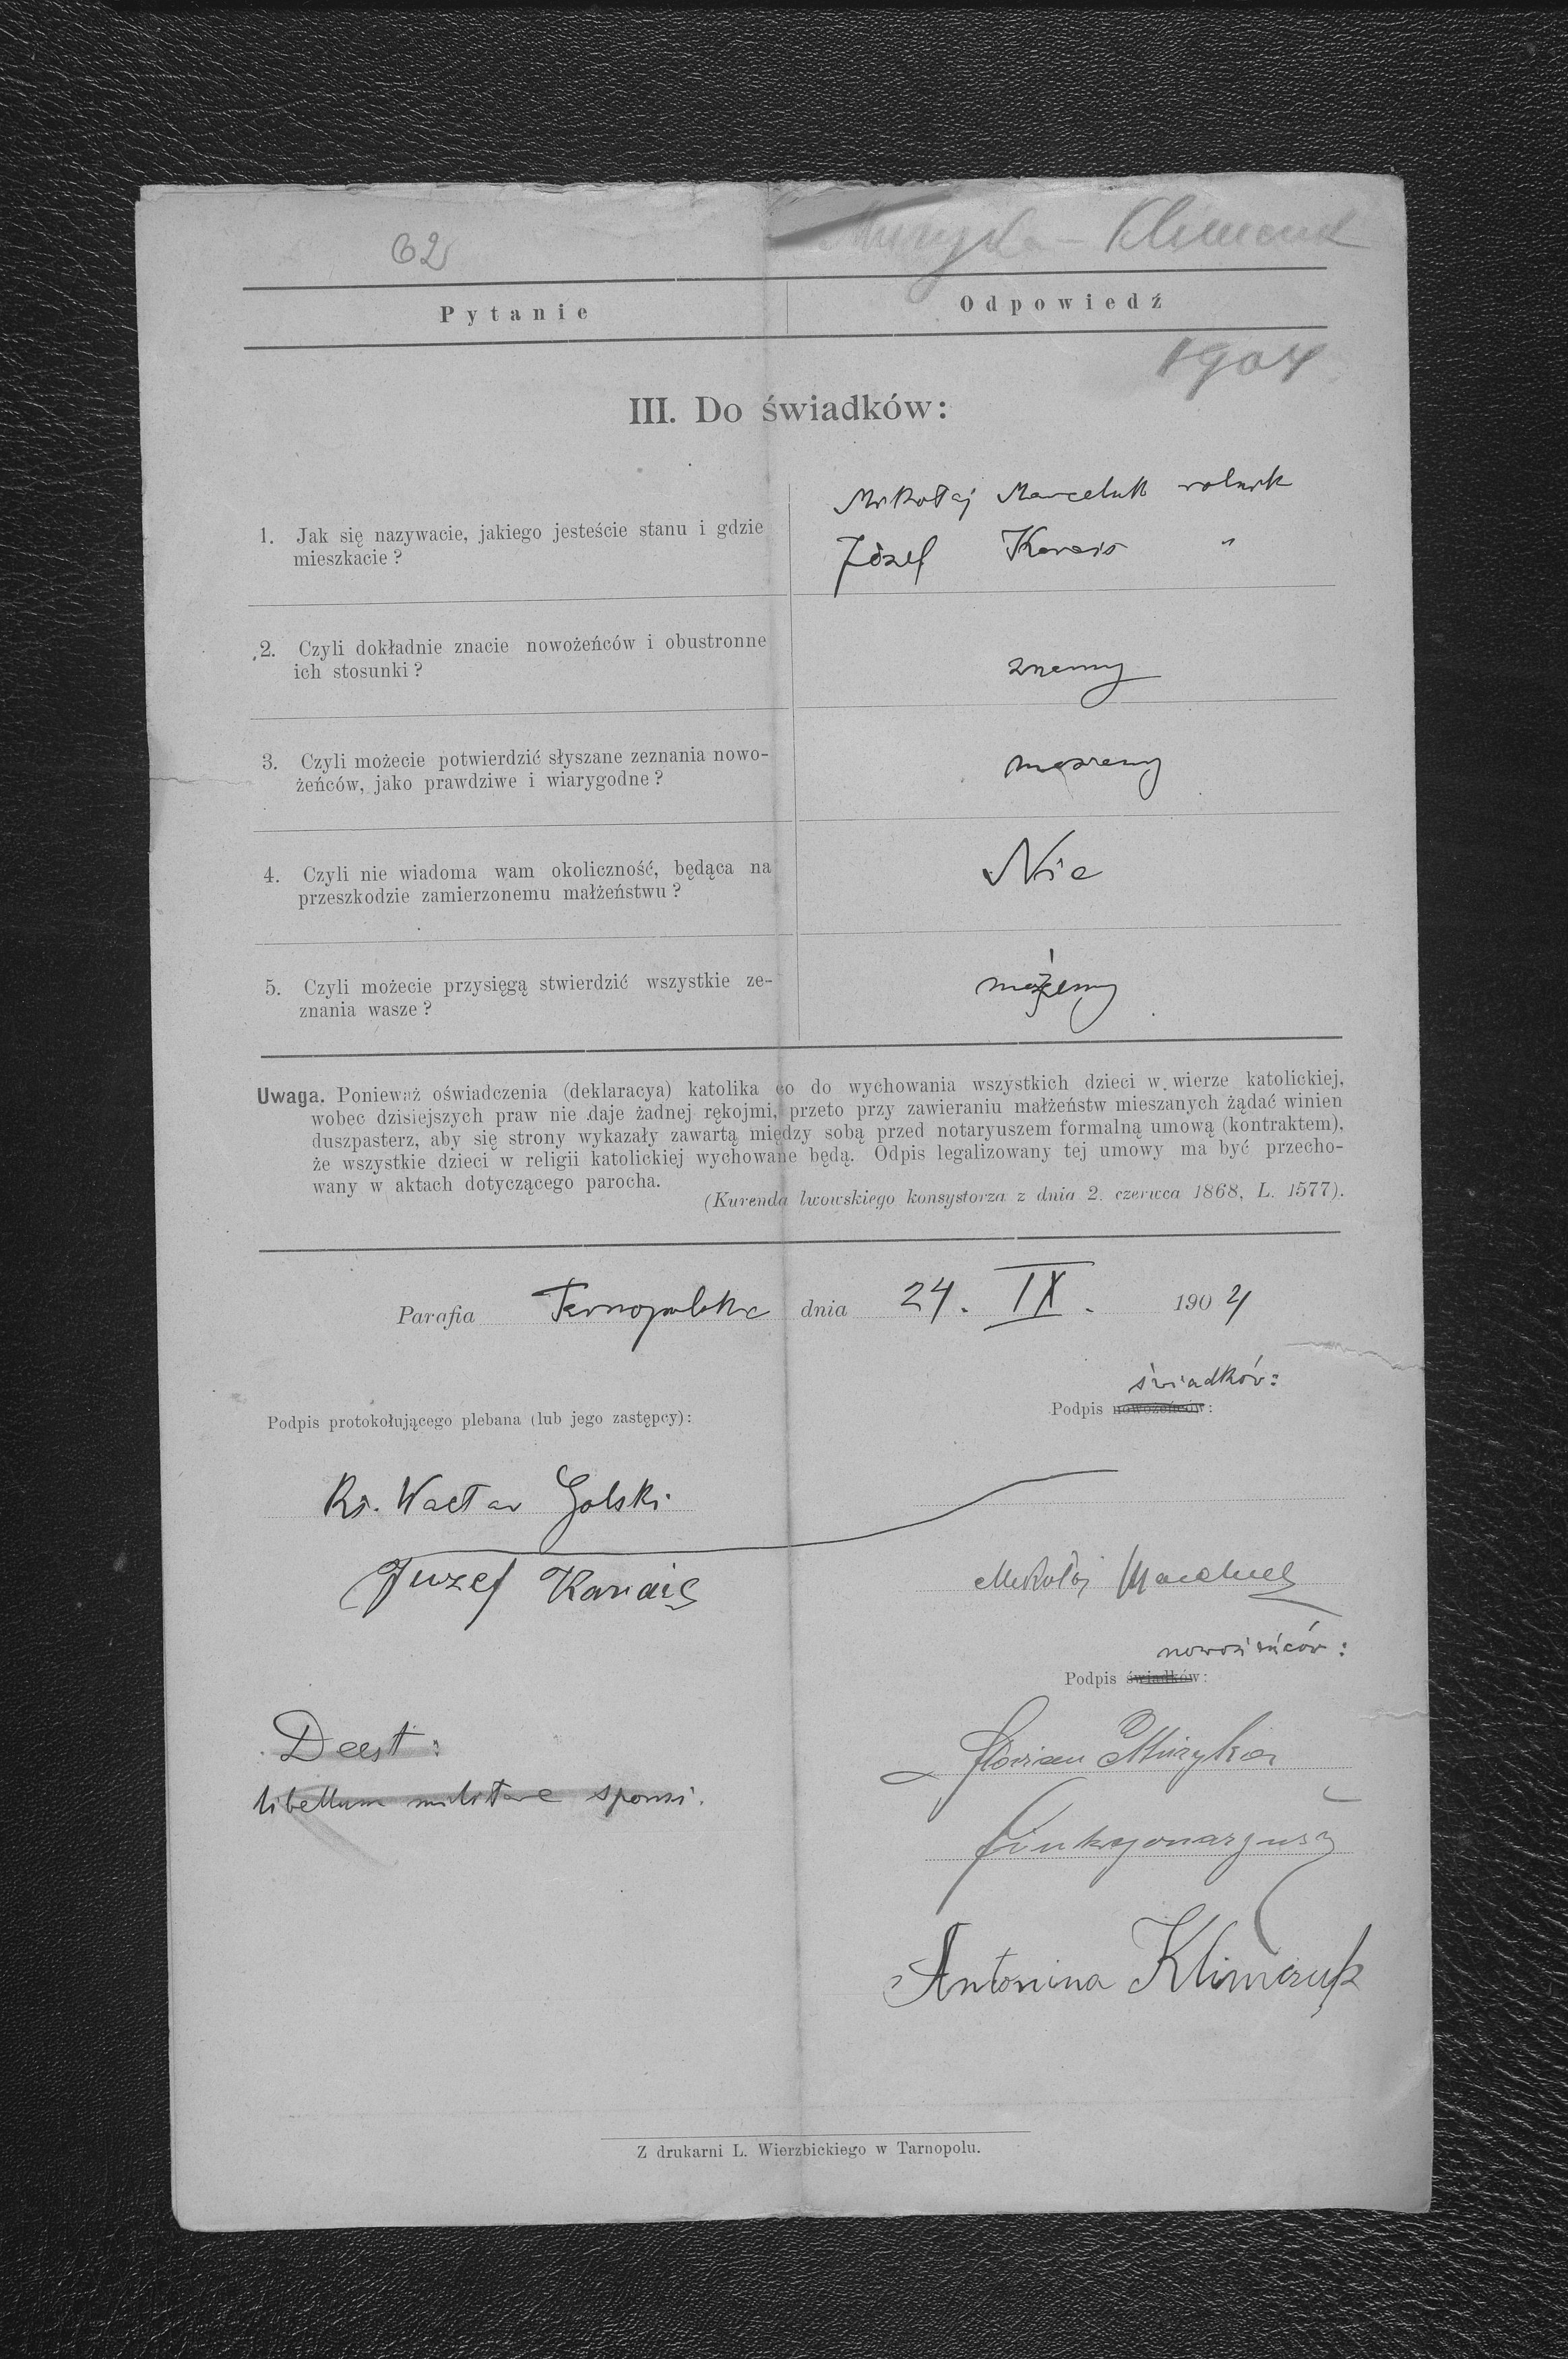 62
Muzyka - Klimczuk
Pytanie
Odpowiedź
1904
III. Do świadków:
1. Jak się nazywacie, jakiego jesteście stanu i gdzie
mieszkacie?
Mikołaj Marceluk rolnik
Józef Karais "
2. Czyli dokładnie znacie nowożeńców i obustronne
ich stosunki?
znamy
3. Czyli możecie potwierdzić słyszane zeznania nowo-
żeńców, jako prawdziwe i wiarygodne?
możemy
4. Czyli nie wiadoma wam okoliczność, będąca na
przeszkodzie zamierzonemu małżeństwu?
Nie
5. Czyli możecie przysięgą stwierdzić wszystkie ze-
znania wasze?
możemy
Uwaga. Ponieważ oświadczenia (deklaracya) katolika co do wychowania wszystkich dzieci w wierze katolickiej,
wobec dzisiejszych praw nie daje żadnej rękojmi, przeto przy zawieraniu małżeństw mieszanych żądać winien
duszpasterz, aby się strony wykazały zawartą między sobą przed notaryuszem formalną umową (kontraktem),
że wszystkie dzieci w religii katolickiej wychowane będą. Odpis legalizowany tej umowy ma być przecho-
wany w aktach dotyczącego parocha.
(Kurenda lwowskiego konsystorza z dnia 2. czerwca 1868, L. 1577).
Parafia Tarnopolska dnia 24. IX. 1904
świadków:
Podpis protokołującego plebana (lub jego zastępcy):
Podpis nowożeńców:
Ks. Wacław Golski
Juzef Karais
Mikołaj
nowożeńców:
Podpis świadków:
Deest:
Floryan Muzyka
libellum militare sponsi.
funkcyonaryusz
Antonina Klimczuk
Z drukarni L. Wierzbickiego w Tarnopolu.